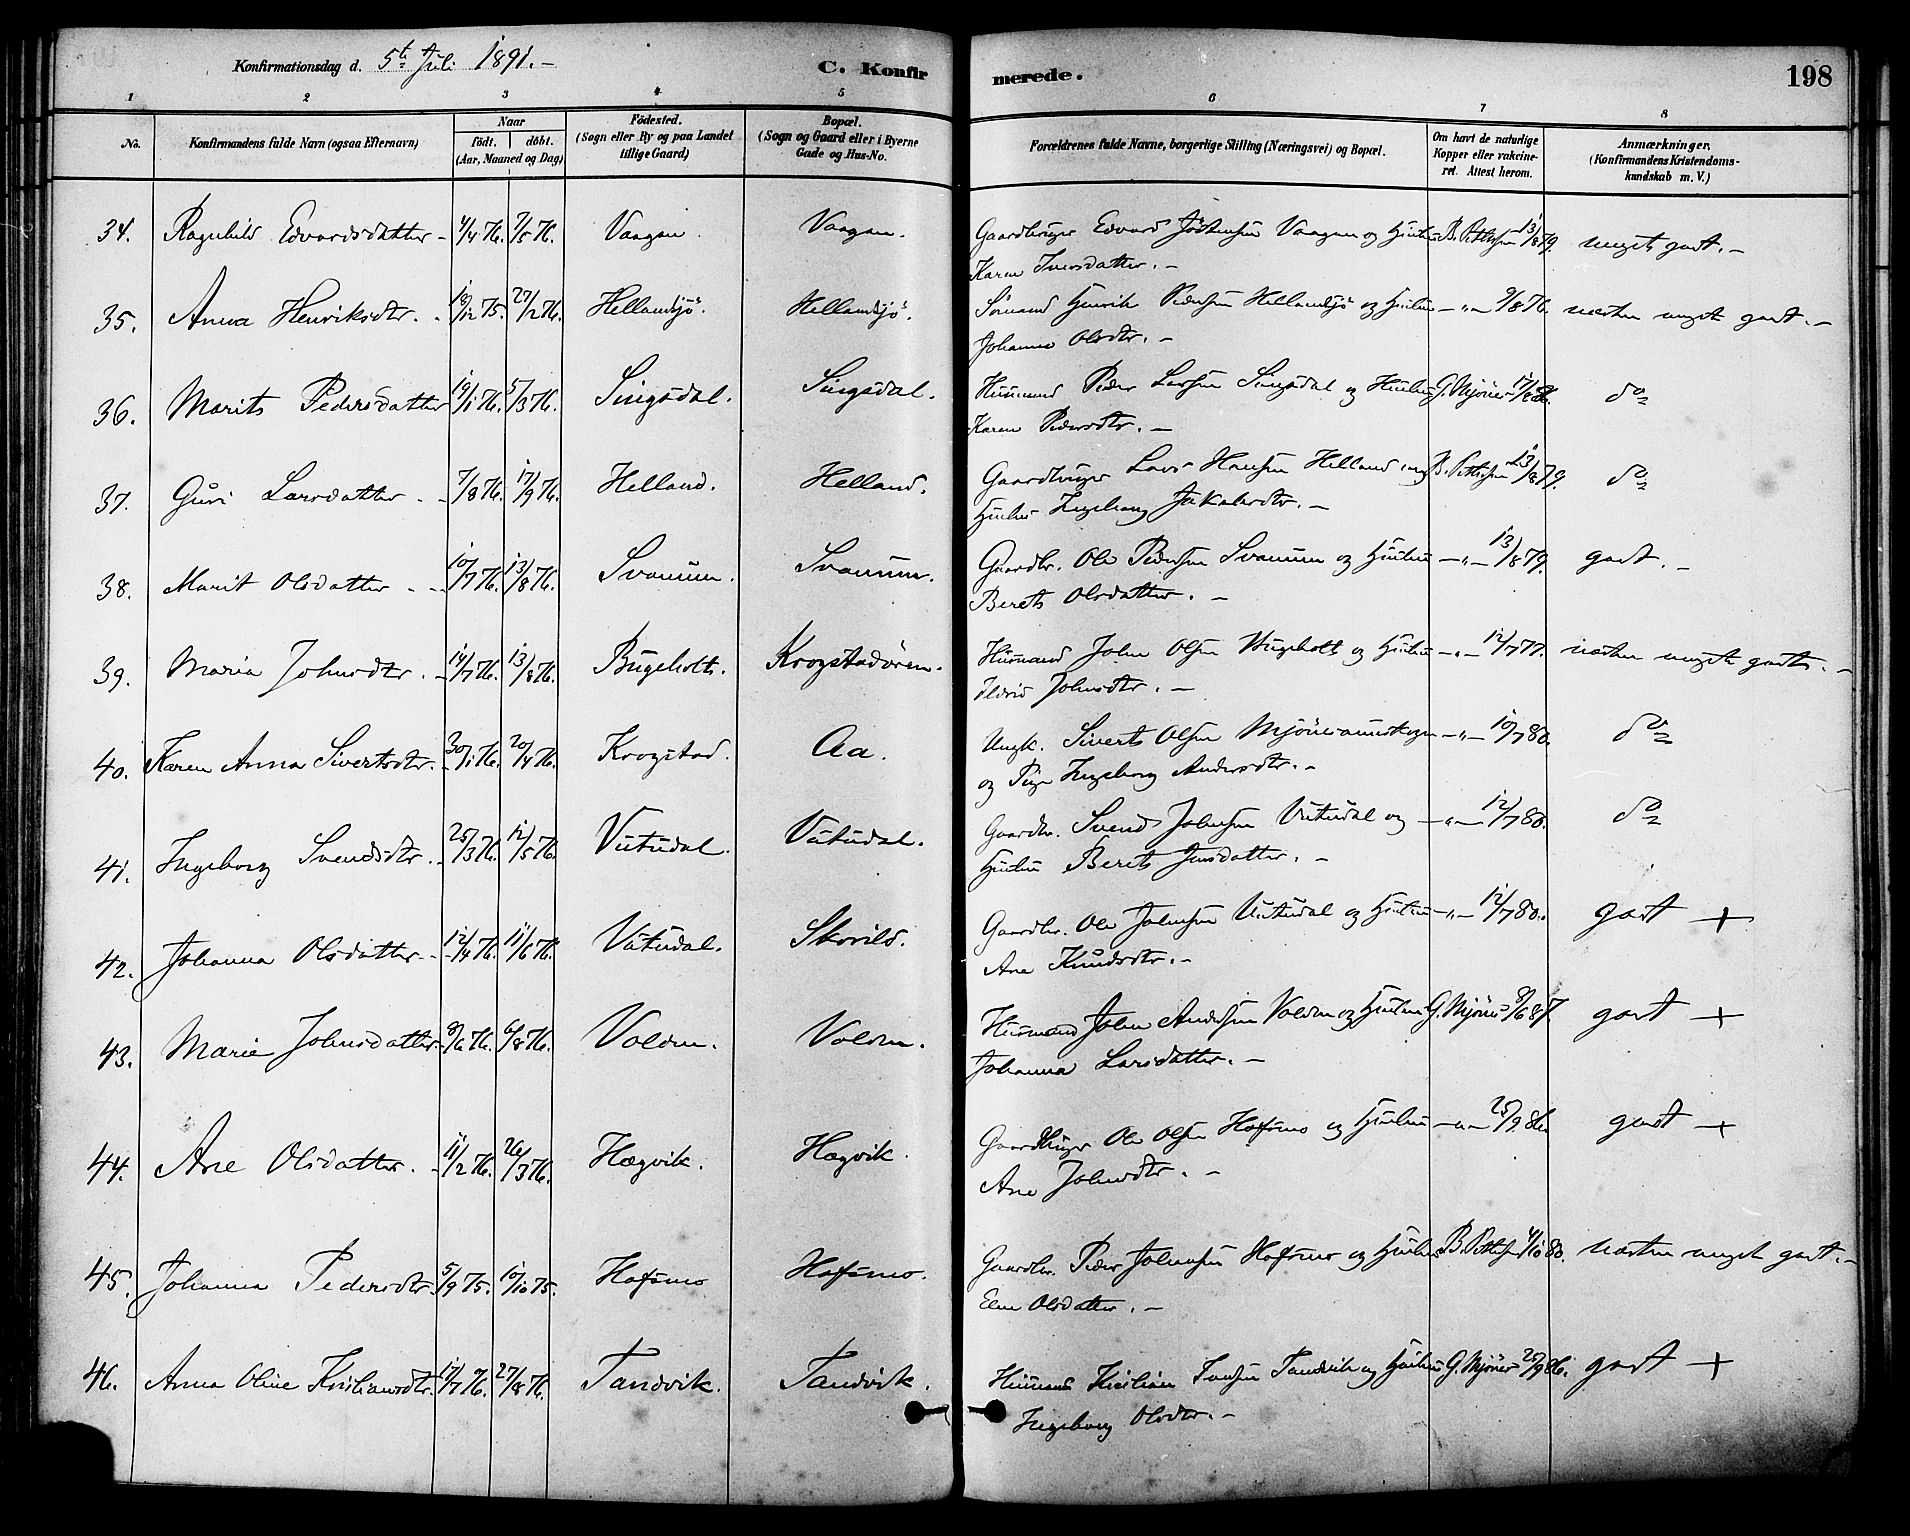 Konfirmationsdag d. 5te Juli 1891. –
C. Konfirmerede.
198
1 2 3 4 5 6 7 8
No.
Konfirmandens fulde Navn (ogsaa Efternavn)
Naar
födt. döbt.
(Aar, Maaned og Dag)
Födested.
(Sogn eller By og paa Landet
tillige Gaard)
Bopæl.
(Sogn og Gaard eller i Byerne
Gade og Hus-No.
Forældrenes fulde Navne, borgerlige Stilling (Næringsvei) og Bopæl.
Om havt de naturlige
Kopper eller vakcine-
ret. Attest herom.
Anmærkninger.
(Konfirmandens Kristendoms-
kundskab m. V.)
34. Ragnhild Edvardsdatter – 4/4 76. 7/5 76. Vaagan. Vaagan. Gaardbruger Edvard Vaagan og Hustru 13/8 79. meget godt. –
Karen Iversdatter. –
35. Anna Henriksdtr. 18/12 75. 27/2 76. Hellandsjö. Hellandsjö. Henrik Pedersen Hellandsjö og Hustru –„– 9/8 76. næsten meget godt. –
Johanna Olsdtr. –
36. Marit Pedersdatter 19/1 76. 5/3 76. Singsdal. Singsdal. Husmand Peder Larsen Singsdal og Hustru G. Mjönes do
Karen Pedersdtr. –
37. Guri Larsdatter 7/8 76. 17/9 76. Helland. Helland. Gaardbruger Lars Hansen Helland og 13/8 79. do
Hustru Ingeborg Jakobsdtr. –
38. Marit Olsdatter 10/7 76. 13/8 76. Svanum. Svanum. Gaardbr. Ole Pedersen Svanum og Hustru –„– 13/8 79. godt. –
Beret Olsdatter. –
39. Maria Johnsdtr. 14/7 76. 13/8 76. Bugeholt. Krogstadören. Husmand John Olsen Bugeholt og Hustru –„– 12/7 77. næsten meget godt. –
Johnsdtr. –
40. Karen Anna Sivertsdtr. 30/1 76. 20/4 76. Krogstad. Aa. Ungk. Sivert Olsen –„– 10/7 80. do
og Pige Ingeborg Andersdtr. –
41. Ingeborg Svendsdtr. 25/3 76. 12/5 76. Vutudal. Vutudal. Gaardbr. Svend Johnsen Vutudal og –„– 12/7 80. do
Hustru Beret Jensdatter. –
42. Johanna Olsdatter 12/4 76. 11/6 76. Vutudal. Skorild. Gaardbr. Ole Johnsen Vutudal og Hustru –„– 12/7 80. godt +
Ane Knudsdtr. –
43. Marie Johnsdatter 8/6 76. 6/8 76. Volden. Volden. Husmand John Andersen Volden og Hustru G. Mjönes 8/6 87. godt +
Johanna Larsdatter. –
44. Ane Olsdatter. 11/2 76. 26/3 76. Hægvik. Hægvik. Gaardbruger Ole Olsen Hofsmo og Hustru –„– 25/9 86. godt +
Ane Johnsdtr. –
45. Johanna Pedersdtr. 5/9 75. 10/10 75. Hofsmo Hofsmo. Gaardbr. Peder Johnsen Hofsmo og Hustru 4/10 80. næsten meget godt. –
Elen Olsdatter. –
46. Anna Oline Kristiansdtr. 17/7 76. 27/8 76. Tandvik. Tandvik. Husmand Kristian Tandvik og Hustru G. Mjönes 25/9 86. godt +
Ingeborg Olsdtr. –